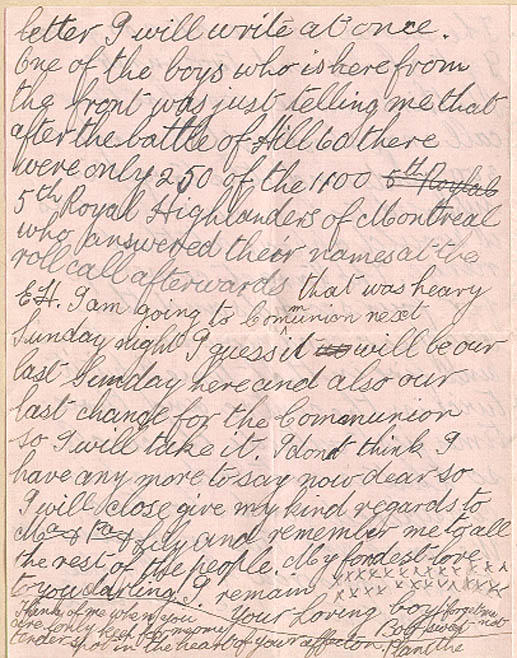 letter I will write at once.
One of the boys who is here from
the front was just telling me that
after the battle of Hill 60 there
were only 250 of the 1100 5th Roylab
5th Royal Highlanders of Montreal
who answered their names at the
roll call afterwards that was heavy
EH. I am going to Communion next
Sunday night I guess it will be our
last Sunday here and also our
last change for the Communion
so I will take it. I dont think I
have any more to say now dear so
I will close give my kind regards to
Ma & Pa & Lily and remember me to all
the rest of the people. My fondest love
to you darling. I remain xxxxxxxxxx
Your Loving boy forget me
Think of me when you Bob sweet not
are lonely keep for me one
tender spot in the heart of your affection. Plant the